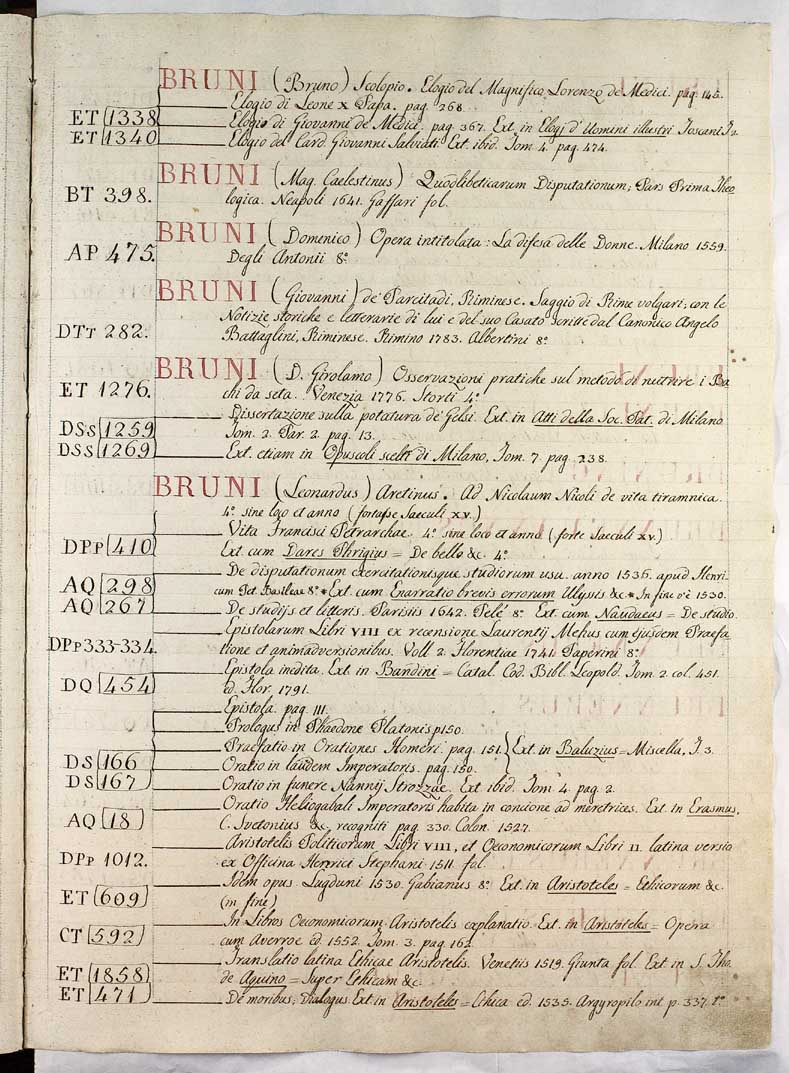 BRUNI (Bruno) Scolopio. Elogio del Magnifico Lorenzo de Medici. pag. 145.
Elogio di Leone X Papa. pag. 268.
ET 1338 Elogio di Giovanni de Medici. pag. 367. Ext. in Elogj d'Uomini illustri Toscani T. 2.
ET 1340 Elogio del Card. Giovanni Salviati Ext. ibid. Tom. 4. pag. 474.
BRUNI (Mag. Caelestinus) Quodlibeticarum Disputationum, Pars Prima Theo
BT 398. logica. Neapoli 1641. Gaffari fol.
BRUNI (Domenico) Opera intitolata: La difesa delle Donne. Milano 1559.
AP 475. Degli Antonii 8.º
BRUNI (Giovanni) de' Parcitadi, Riminese. Saggio di Rime volgari; con le
Notizie storiche e letterarie di lui e del suo Casato scritte dal Canonico Angelo
DTt 282. Battaglini, Riminese. Rimino 1783. Albertini 8.º
BRUNI (D. Girolamo) Osservazioni pratiche sul metodo di nutrire i Ba
ET 1276. chi da seta. Venezia 1776. Storti 4.º
Dissertazione sulla potatura de' Gelsi. Ext. in Atti della Soc. Pat. di Milano
DSs 1259 Tom. 2. Par. 2. pag. 13.
DSS 1269 Ext. etiam in Opuscoli scelti di Milano, Tom. 7. pag. 238.
BRUNI (Leonardus) Aretinus. Ad Nicolaum Nicoli de vita tiramnica.
4.º sine loco et anno (fortasse Saeculi XV.)
Vita Francisci Petrarchae. 4.º sine loco et anno (forte Saeculi XV.)
DPp 410 Ext. cum Dares Phrigius = De bello &c. 4.º
De disputationum exercitationisque studiorum usu. anno 1536. apud Henri.
AQ 298 cum Pet. Basileae 8.º * Ext. cum Enarratio brevis errorum Ulysis &c * In fine v'è 1530.
AQ 267 De studijs et litteris. Parisiis 1642. Pelé 8.º Ext. cum Naudaeus = De studio.
Epistolarum Libri VIII ex recensione Laurentij Mehus cum ejusdem Praefa
DPp 333-334. tione et animadversionibus. Voll. 2. Florentiae 1741. Paperini 8.º
Epistola inedita. Ext. in Bandini = Catal. Cod. Bibl. Leopold. Tom. 2. col. 451.
DQ 454 ed. Flor. 1791.
Epistola. pag. 111.
Prologus in Phaedone Platonis p 150.
Praefatio in Orationes Homeri. pag. 151. Ext. in Baluzius = Miscella, T. 3.
DS 166 Oratio in laudem Imperatoris. pag. 150.
DS 167 Oratio in funere Nannij Strozzae. Ext. ibid. Tom. 4. pag. 2.
Oratio Heliogabali Imperatoris habita in concione ad meretrices. Ext. in Erasmus,
AQ 18 C. Svetonius &c, recogniti pag. 330. Colon. 1527.
Aristotelis Politicorum Libri VIII, et Oeconomicorum Libri II. latina versio
DPp 1012. ex Officina Henrici Stephani 1511. fol.
Idem opus Lugduni 1530. Gabianus 8.º Ext. in Aristoteles = Ethicorum &c.
ET 609 (in fine)
In Libros Oeconomicorum Aristotelis explanatio. Ext. in Aristoteles = Opera
CT 592 cum Averroe ed. 1552. Tom. 3. pag. 162.
Translatio latina Ethicae Aristotelis. Venetiis 1519. Giunta fol. Ext. in S. Tho.
ET 1858 de Aquino = Super Ethicam &c.
ET 471 De moribus, dialogus. Ext. in Aristoteles = Ethica ed. 1535. Argyropilo int. p. 337. t.º